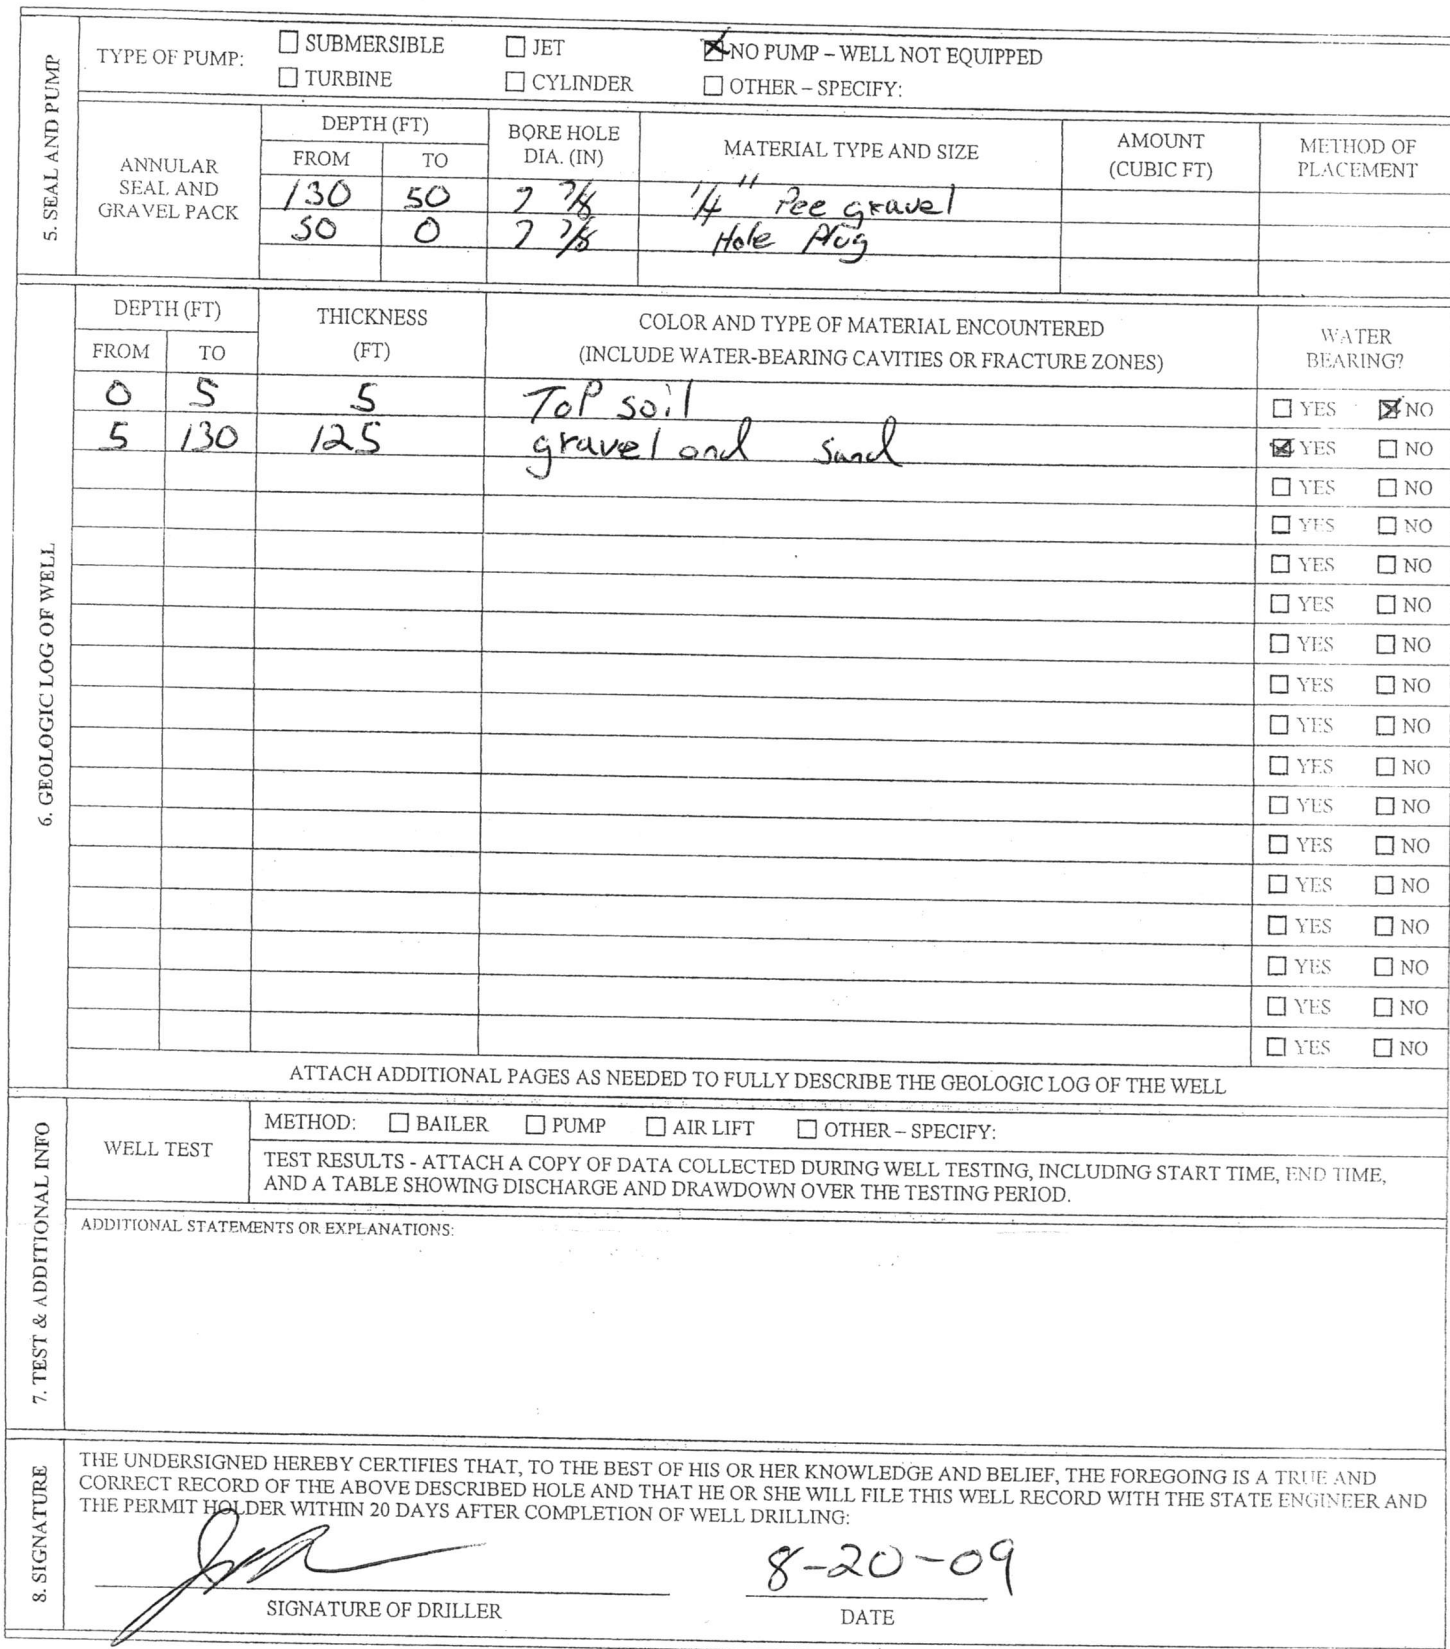 5. SEAL AND PUMP
TYPE OF PUMP: ☐ SUBMERSIBLE ☐ JET ☒ NO PUMP – WELL NOT EQUIPPED
☐ TURBINE ☐ CYLINDER ☐ OTHER – SPECIFY:
ANNULAR SEAL AND GRAVEL PACK
DEPTH (FT) BORE HOLE DIA. (IN) MATERIAL TYPE AND SIZE AMOUNT (CUBIC FT) METHOD OF PLACEMENT
FROM TO
130 50 7 7/8 1/4" Pee gravel
50 0 7 7/8 Hole Plug
6. GEOLOGIC LOG OF WELL
DEPTH (FT) THICKNESS (FT) COLOR AND TYPE OF MATERIAL ENCOUNTERED WATER BEARING?
FROM TO (INCLUDE WATER-BEARING CAVITIES OR FRACTURE ZONES)
0 5 5 ToP soil ☐ YES ☒ NO
5 130 125 gravel and sand ☒ YES ☐ NO
☐ YES ☐ NO
☐ YES ☐ NO
☐ YES ☐ NO
☐ YES ☐ NO
☐ YES ☐ NO
☐ YES ☐ NO
☐ YES ☐ NO
☐ YES ☐ NO
☐ YES ☐ NO
☐ YES ☐ NO
☐ YES ☐ NO
☐ YES ☐ NO
☐ YES ☐ NO
☐ YES ☐ NO
☐ YES ☐ NO
ATTACH ADDITIONAL PAGES AS NEEDED TO FULLY DESCRIBE THE GEOLOGIC LOG OF THE WELL
7. TEST & ADDITIONAL INFO
WELL TEST
METHOD: ☐ BAILER ☐ PUMP ☐ AIR LIFT ☐ OTHER – SPECIFY:
TEST RESULTS - ATTACH A COPY OF DATA COLLECTED DURING WELL TESTING, INCLUDING START TIME, END TIME,
AND A TABLE SHOWING DISCHARGE AND DRAWDOWN OVER THE TESTING PERIOD.
ADDITIONAL STATEMENTS OR EXPLANATIONS:
8. SIGNATURE
THE UNDERSIGNED HEREBY CERTIFIES THAT, TO THE BEST OF HIS OR HER KNOWLEDGE AND BELIEF, THE FOREGOING IS A TRUE AND
CORRECT RECORD OF THE ABOVE DESCRIBED HOLE AND THAT HE OR SHE WILL FILE THIS WELL RECORD WITH THE STATE ENGINEER AND
THE PERMIT HOLDER WITHIN 20 DAYS AFTER COMPLETION OF WELL DRILLING:
8-20-09
SIGNATURE OF DRILLER DATE